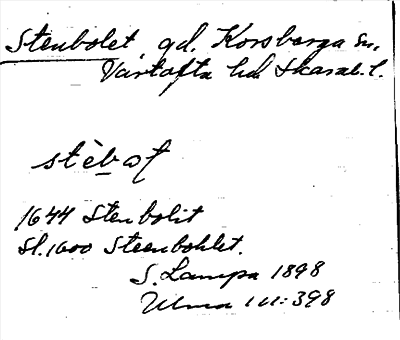 Stenbolet, gd. Korsberga sn.
Vartofta hd Skarab. l.
stèbot
1644 Stenbolit
Sl. 1600 Steenbohlet.
S. Lampa 1898
Ulma 111:398